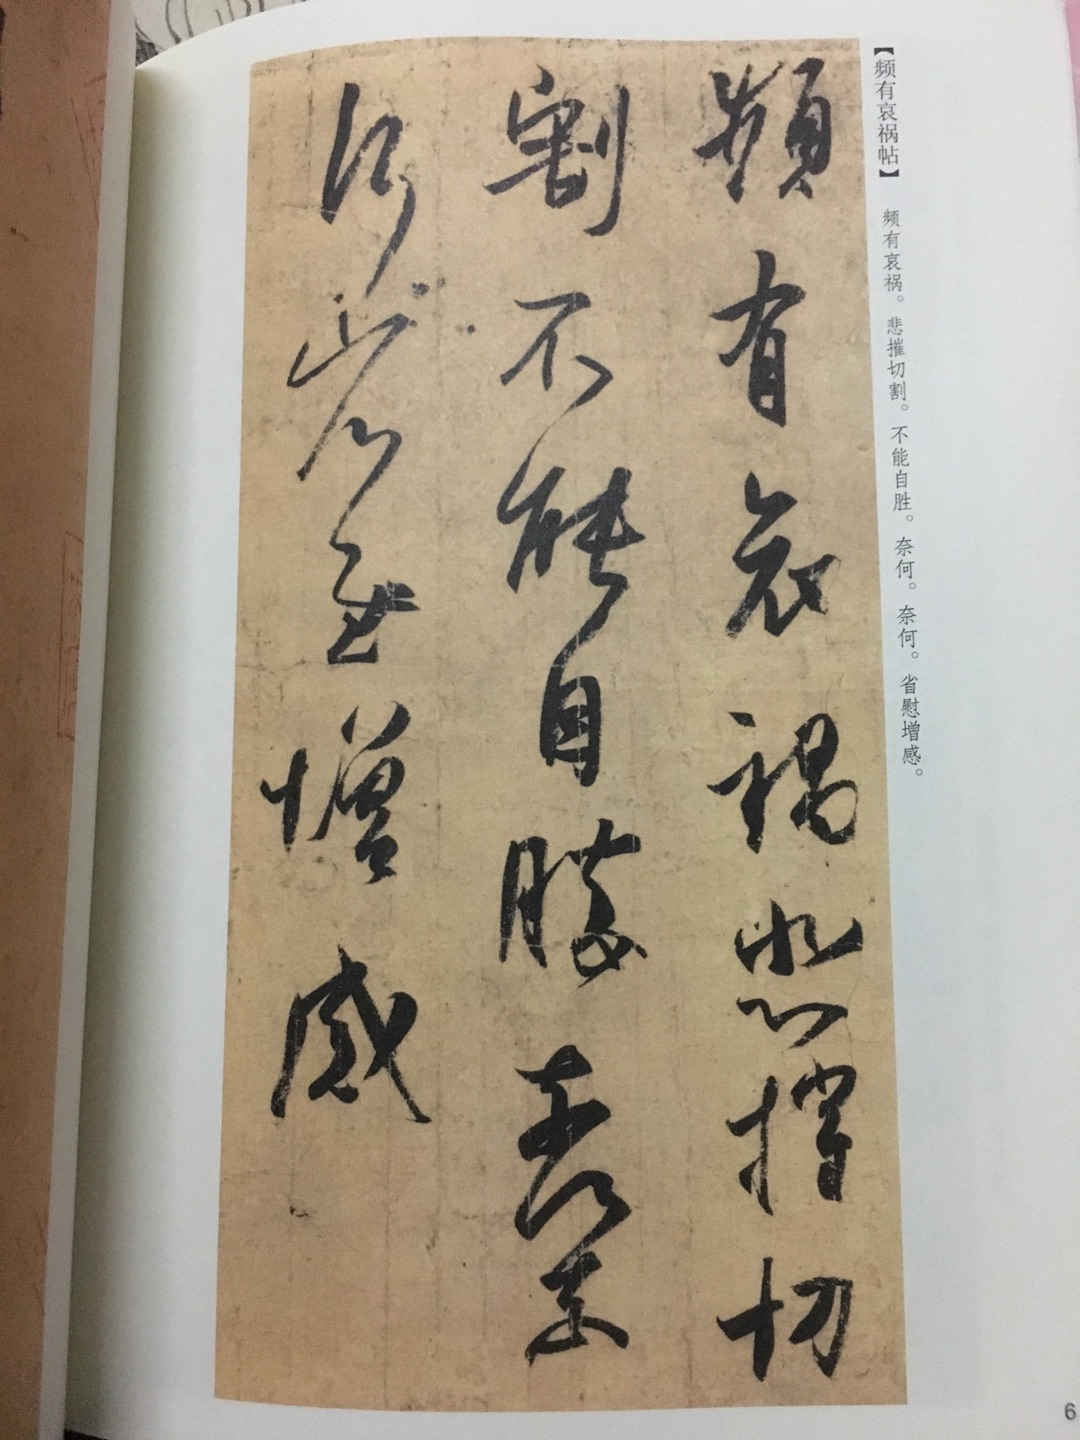 【频有哀祸帖】 频有哀祸。悲摧切割。不能自胜。奈何。奈何。省慰增感。
頻有哀禍悲摧切
割不能自勝奈何奈
何省慰增感
6